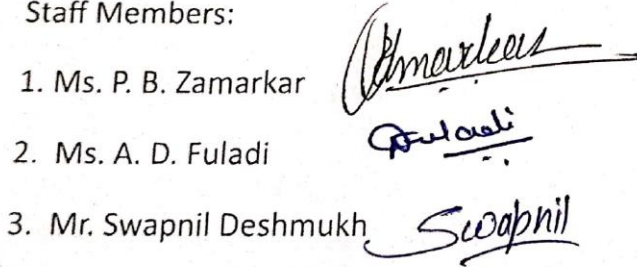 Staff Members:
1. Ms. P. B. Zamarkar
2. Ms. A. D. Fuladi
3. Mr. Swapnil Deshmukh Swapnil